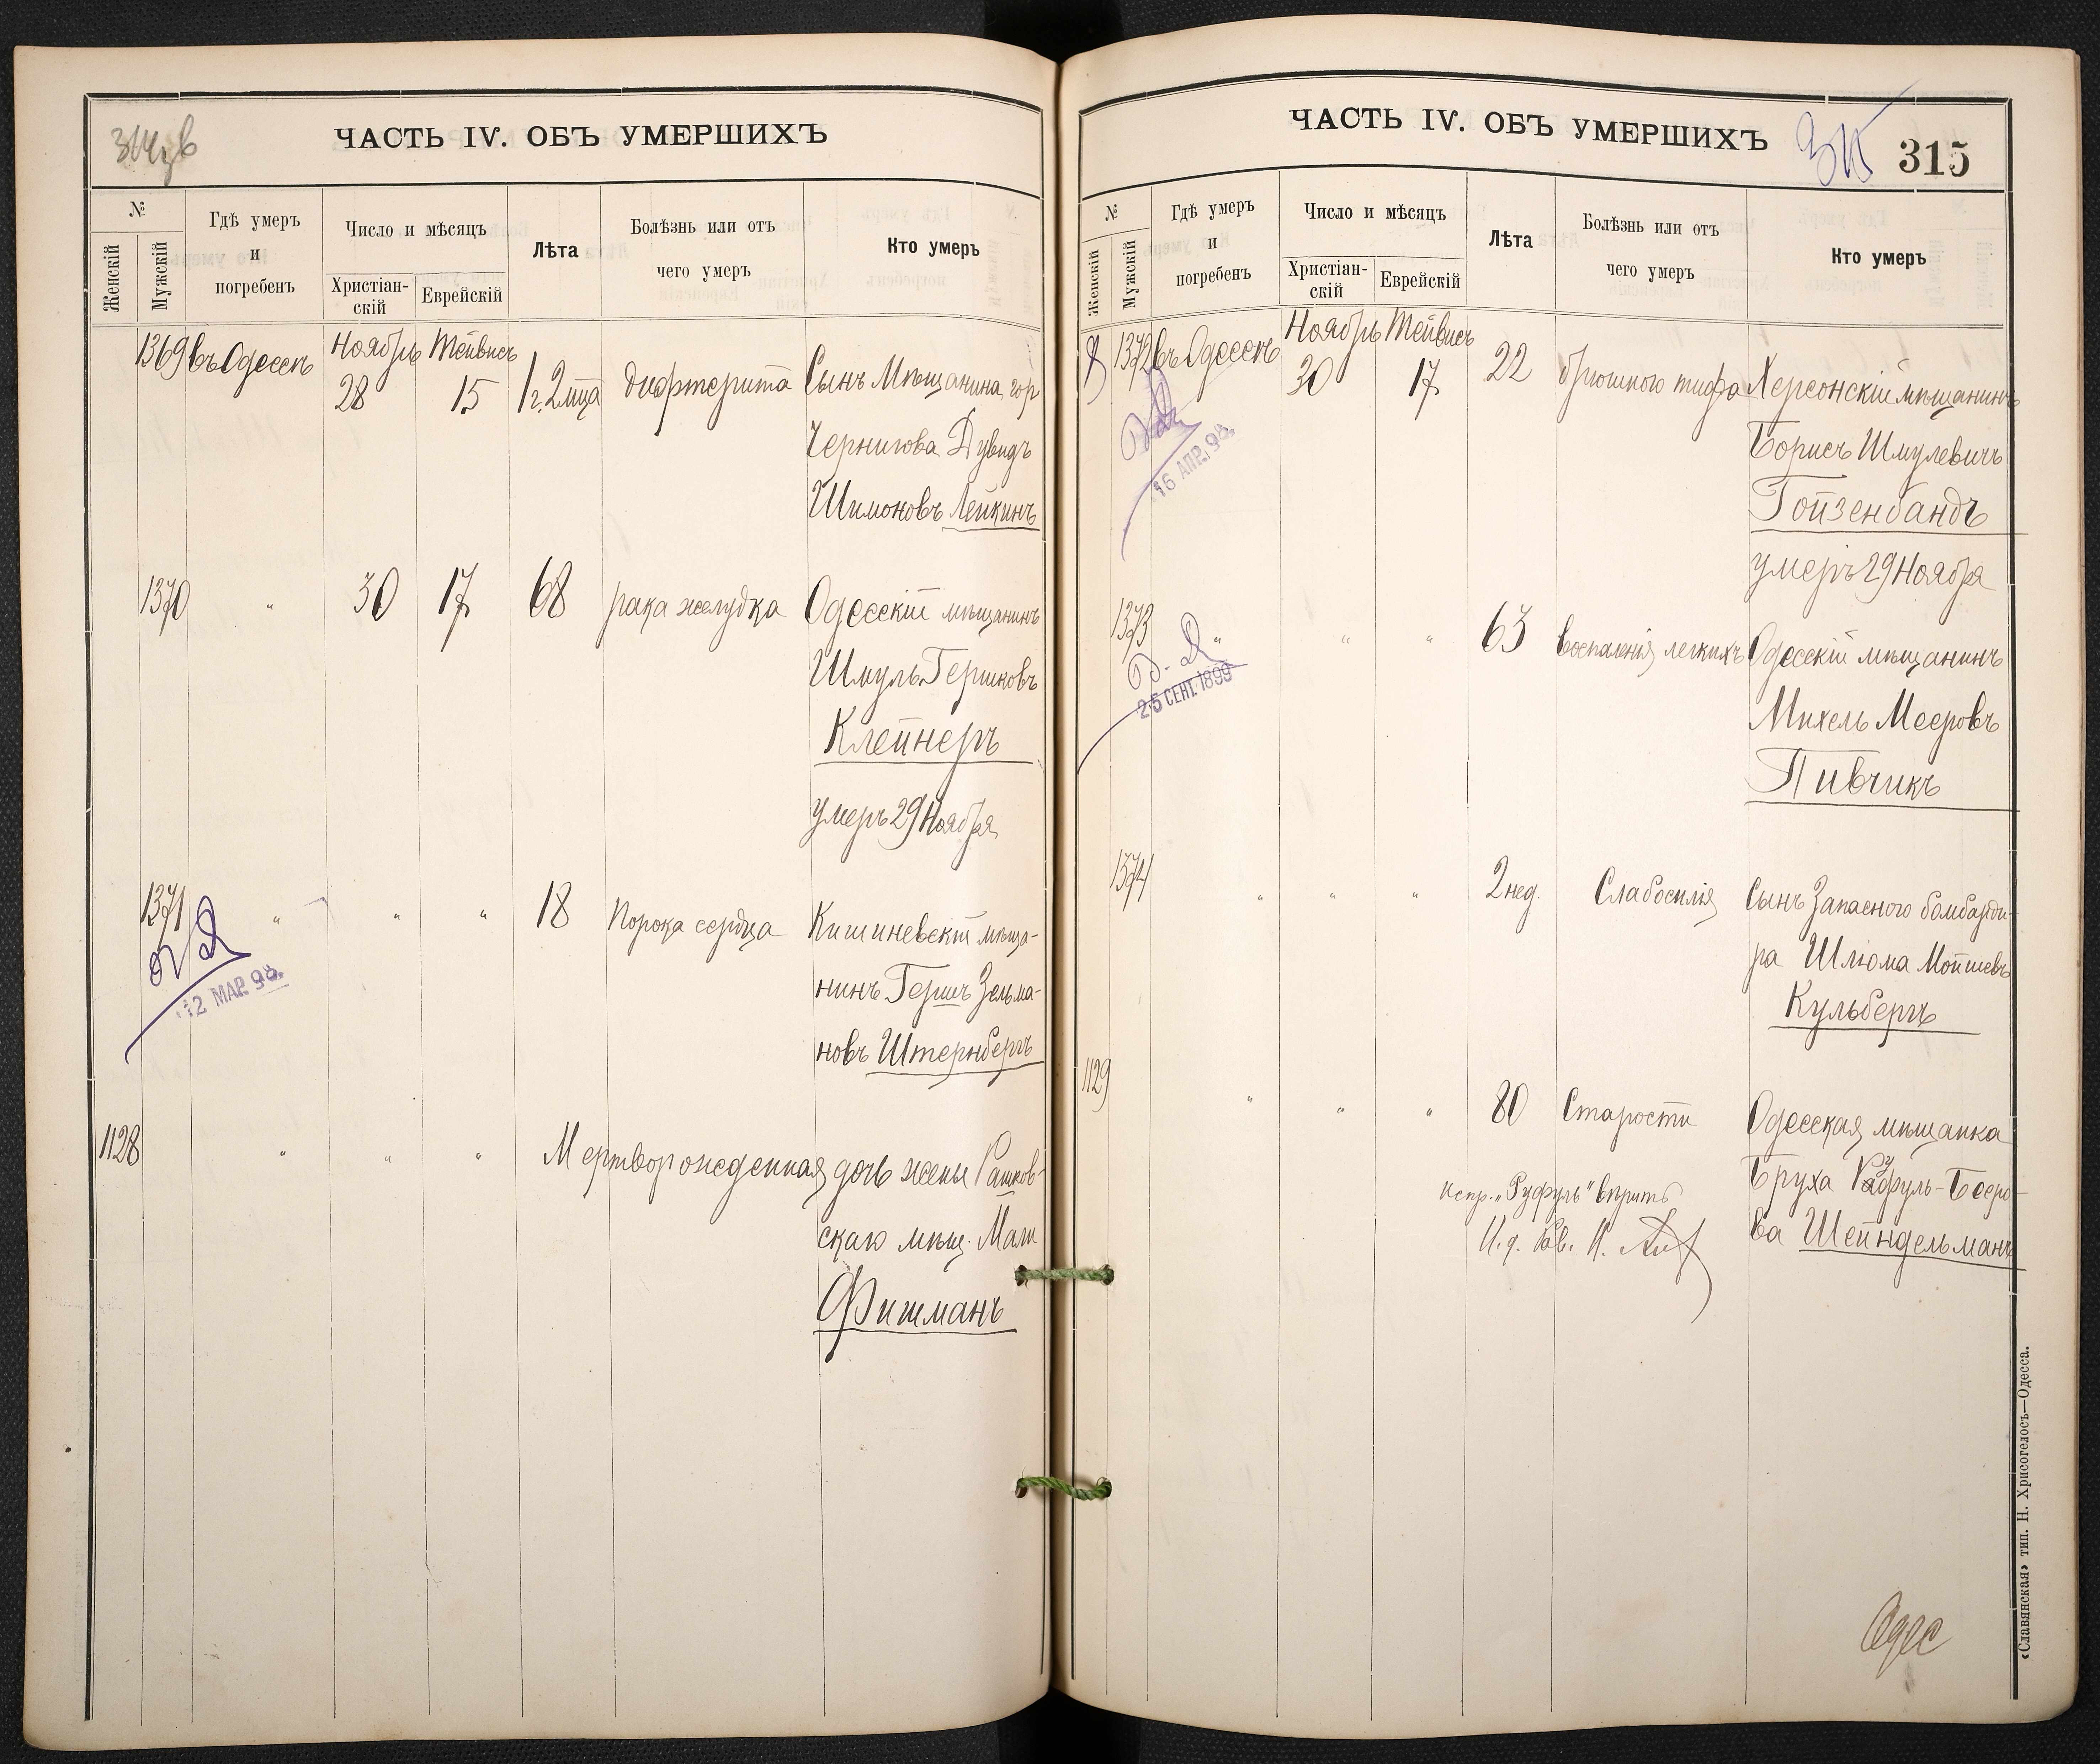 314 об
ЧАСТЬ IV. ОБЪ УМЕРШИХЪ
№
Женскій
Мужскій
Гдѣ умеръ
и
погребенъ
Число и мѣсяцъ
Христіан-
скій
Еврейскій
Лѣта
Болѣзнь или отъ
чего умеръ
Кто умеръ
1369 въ Одессѣ Ноябрь 28 Тейвисъ 15 1 г. 2 мца дифтерита Сынъ Мѣщанина гор
Чернигова Дувидъ
Шимоновъ Лейкинъ
1370 " 30 17 68 рака желудка Одесскій мѣщанинъ
Шмуль Гершковъ
Клейнеръ
умеръ 29 Ноября
1371 " " " 18 порока сердца Кишиневскій мѣща-
нинъ Гершъ Зельма-
новъ Штернбергъ
12 МАР. 98.
1128 " " " Мертворожденная дочь жены Рашков-
скаго мѣщ. Мали
Фишманъ
ЧАСТЬ IV. ОБЪ УМЕРШИХЪ
315
315
№
Женскій
Мужскій
Гдѣ умеръ
и
погребенъ
Число и мѣсяцъ
Христіан-
скій
Еврейскій
Лѣта
Болѣзнь или отъ
чего умеръ
Кто умеръ
1372 въ Одессѣ Ноябрь 30 Тейвисъ 17 22 брюшного тифа Херсонскій мѣщанинъ
Борисъ Шмулевичъ
Гойзенбандъ
умеръ 29 Ноября
16 АПР. 98.
1373 " " " 63 воспаленія легкихъ Одесскій мѣщанинъ
Михель Мееровъ
Пивчикъ
25 СЕНТ. 1899
1374 " " " 2 нед. Слабосилія Сынъ Запасного бомбарди-
ра Шлюма Мойшевъ
Кульбергъ
1129 " " " 80 Старости Одесская мѣщанка
Бруха Руфуль-Бееро-
ва Шейндельманъ
испр. „Руфуль" вѣрить
И. д. Рав.
Одес
«Славянская» тип. Н. Хрисогелосъ—Одесса.